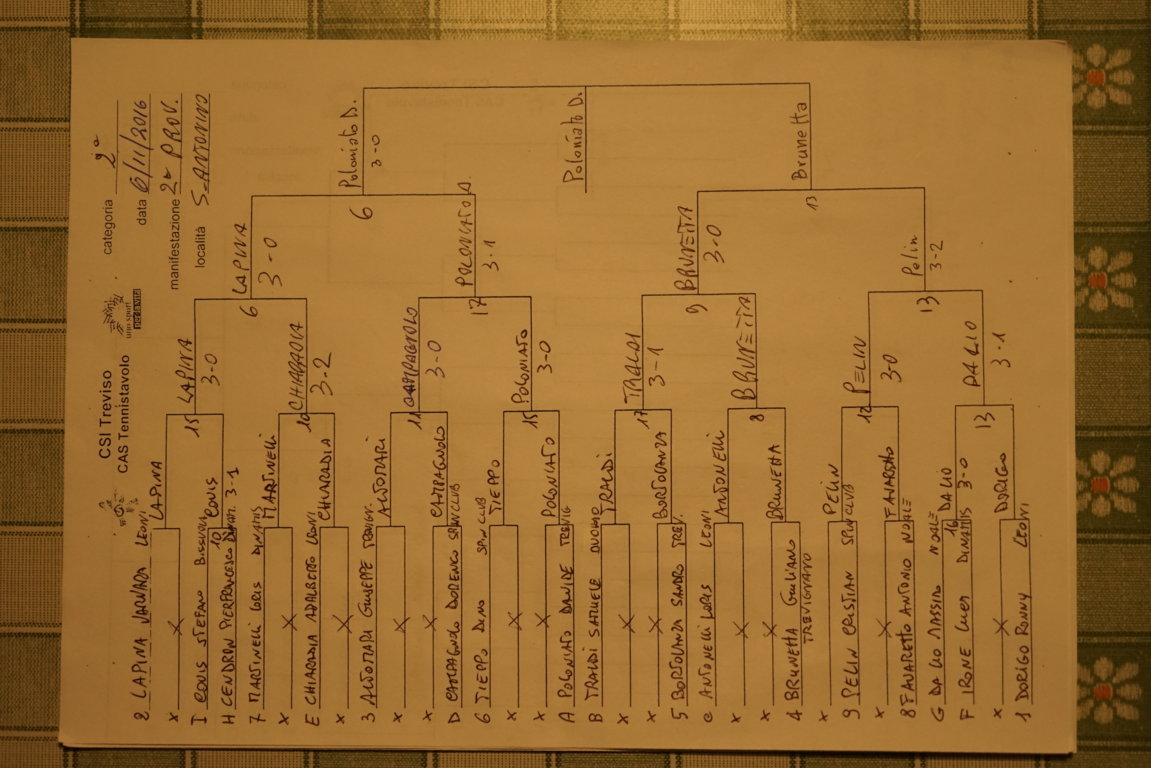 CSI Treviso
CAS Tennistavolo
categoria 2
data 6/11/2016
manifestazione 2ª PROV.
località S. ANTONINO
2 LAPINA LEONI
X X
I STEFANO
H CENDRON PIERFRANCESCO
7 MARTINELLI LORIS
X X
E CHIARADIA ADALBERTO LEONI
X X
3 ALTOMARI GIUSEPPE
X X
X X
D CAMPAGNOLO SPIN CLUB
6 TIEPPO DINO SPIN CLUB
X X
X X
A POLONIATO DAVIDE TREVIG
B TRALDI SAMUELE DUOMO
X X
X X
5 BORTOLANZA SANDRO TREV.
C ANTONELLI LORIS LEONI
X X
X X
4 BRUNETTA GIULIANO
TREVIGNANO
X
9 PELIN CRISTIAN SPIN CLUB
X X
8 FAVARETTO ANTONIO NOALE
G DA LIO MASSIMO NOALE
F IRONE LUCA DINAMIS
X X
1 DORIGO RONNY LEONI
LAPINA
10
3-1
MARTINELLI
CHIARADIA
ALTOMARI
CAMPAGNOLO
TIEPPO
POLONIATO
TRALDI
BORTOLANZA
ANTONELLI
BRUNETTA
PELIN
FAVARETTO
DA LIO
16
3-0
DORIGO
15
LAPINA
3-0
10
CHIARADIA
3-2
11
CAMPAGNOLO
3-0
15
POLONIATO
3-0
17
TRALDI
3-1
8
BRUNETTA
12
PELIN
3-0
13
DA LIO
3-1
6
LAPINA
3-0
17
POLONIATO D.
3-1
9
BRUNETTA
3-0
13
Pelin
3-2
6
Poloniato D.
3-0
13
Brunetta
Poloniato D.